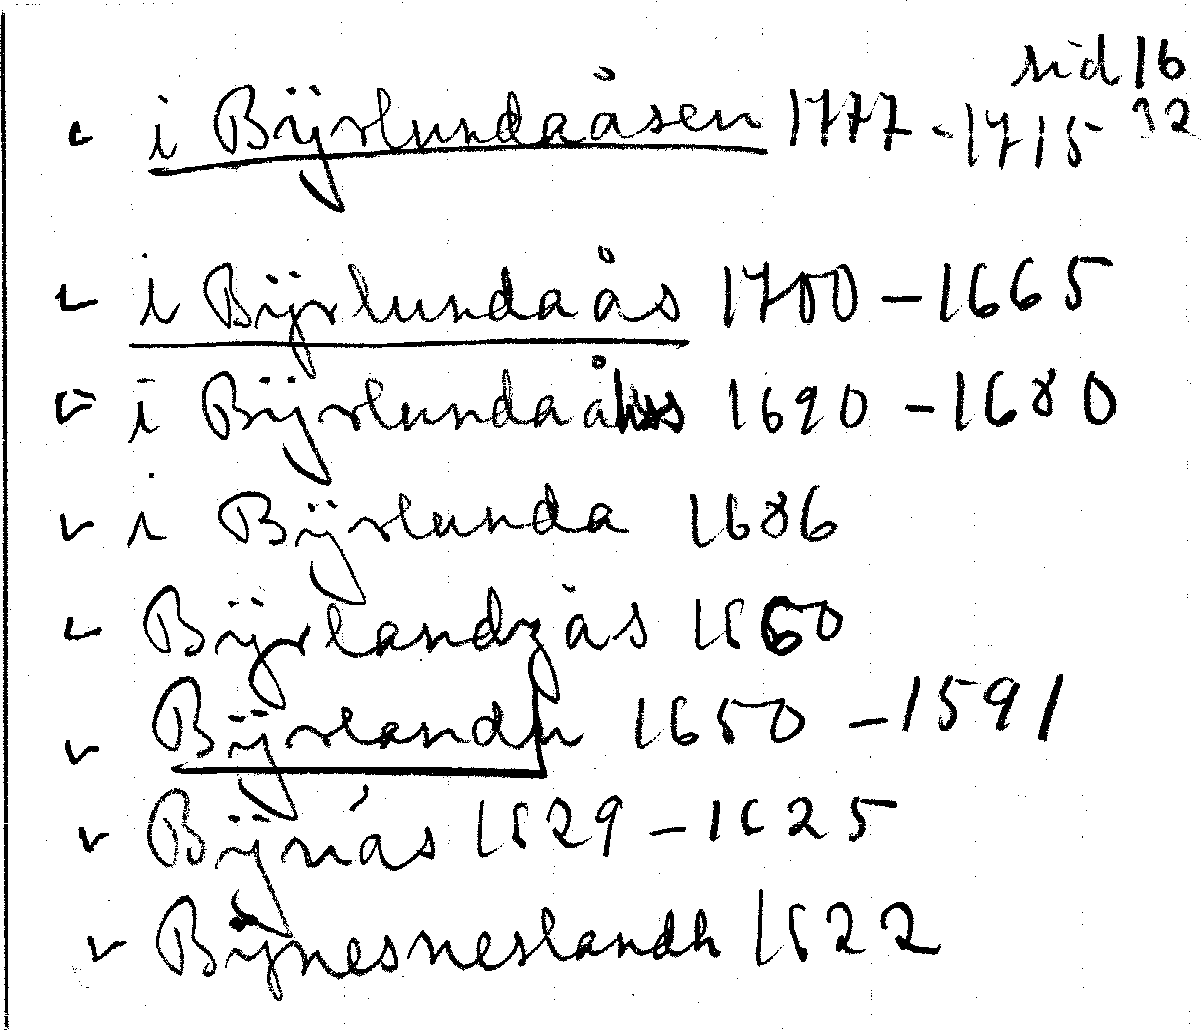 sid 16
i Bÿrlundaåsen 1777-1715 32
i Bÿrlundaås 1700-1665
i Bÿrlundaå 1690-1680
i Bÿrlunda 1686
Bÿrlandzås 1660
Bÿrlandh 1650-1591
Bÿnás 1629-1625
Bÿnesneslandh 1622